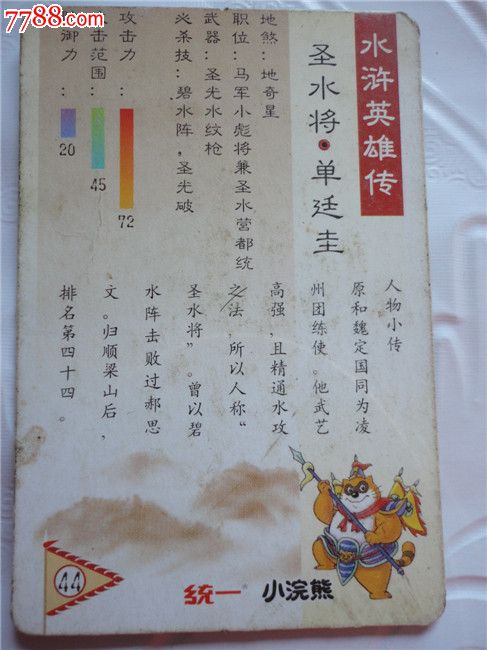 7788.com
水浒英雄传
圣水将·单廷圭
地煞：地奇星
职位：马军小彪将兼圣水营都统
武器：圣光水纹枪
必杀技：碧水阵，圣光破
攻击力：
72
击范围：
45
御力：
20
人物小传
原和魏定国同为凌
州团练使。他武艺
高强，且精通水攻
之法，所以人称“
圣水将”。曾以碧
水阵击败过郝思
文。归顺梁山后，
排名第四十四。
44
统一 小浣熊